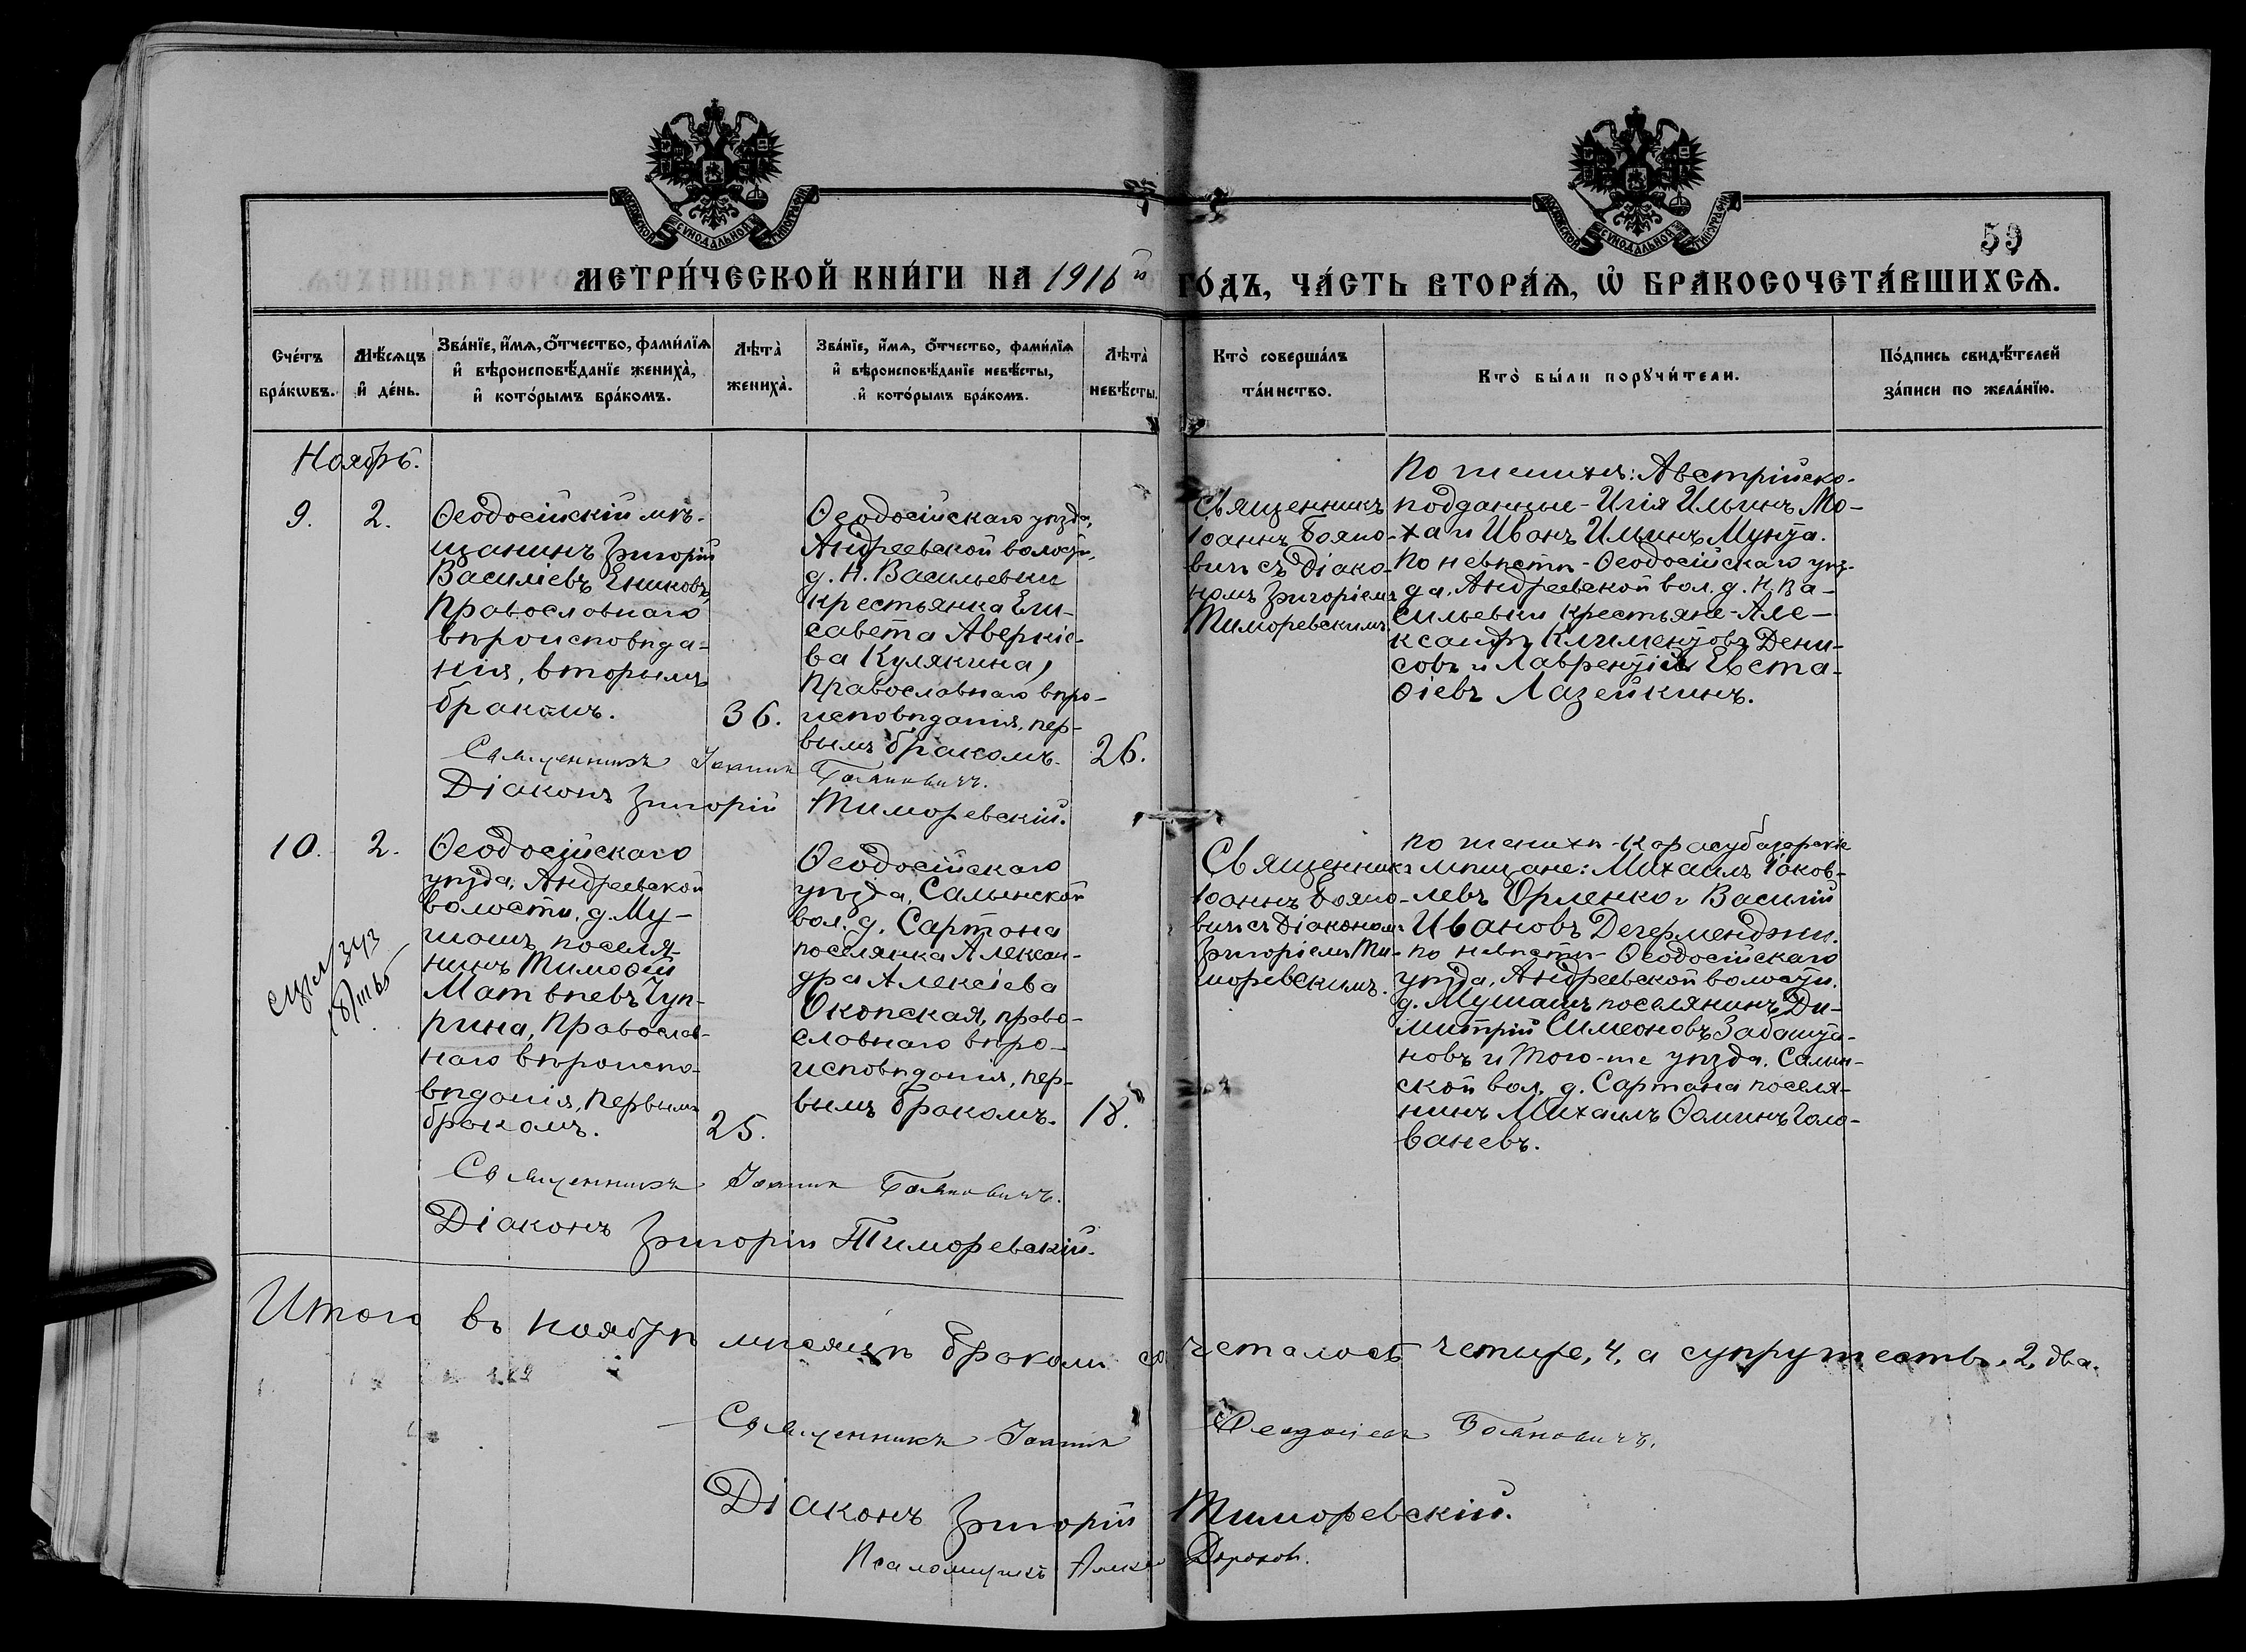 59
МОСКОВСКОЙ СУНОДАЛЬНОЙ ТИПОГРАФІИ
МОСКОВСКОЙ СУНОДАЛЬНОЙ ТИПОГРАФІИ
МЕТРИ́ЧЕСКОЙ КНИ́ГИ НА 1916й ГО́ДЪ, ЧА́СТЬ ВТОРА́Ѧ, Ѽ БРАКОСОЧЕТА́ВШИХСѦ.
Сче́тъ
бра́кѡвъ.
Мѣ́сѧцъ
и҆ де́нь.
Зва́нїе, и҆́мѧ, ѻ҆́тчество, фами́лїѧ
и҆ вѣроисповѣ́данїе жениха̀,
и҆ кото́рымъ бра́комъ.
Лѣта̀
жениха̀.
Зва́нїе, и҆́мѧ, ѻ҆́тчество, фами́лїѧ
и҆ вѣроисповѣ́данїе невѣ́сты,
и҆ кото́рымъ бра́комъ.
Лѣта̀
невѣ́сты.
Кто̀ соверша́лъ
та́инство.
Кто̀ бы́ли порꙋчи́тели.
По́дпись свидѣ́телей
за́писи по жела́нїю.
Ноябрь.
9.
2.
Ѳеодосійскій мѣ-
щанинъ Григорій
Василіевъ Ениковъ,
Православнаго
вѣроисповѣда-
нія, вторымъ
бракомъ.
36.
Ѳеодосійскаго уѣзда,
Андреевской волости,
д. Н. Васильевки
крестьянка Ели-
савета Аверкіе-
ва Кулякина,
Православнаго вѣро-
исповѣданія, пер-
вымъ бракомъ.
26.
Священникъ
Іоаннъ Бояно-
вичъ съ Діако-
номъ Григоріемъ
Тиморевскимъ
По женихѣ: Австрійско-
подданные - Илія Ильинъ Мо-
ха и Иванъ Ильинъ Мунта.
По невѣстѣ - Ѳеодосійскаго уѣз-
да, Андреевской вол. д. Н. Ва-
сильевки крестьяне - Але-
ксандръ Климентовъ Дени-
совъ и Лаврентій Евста-
ѳіевъ Лазейкинъ.
Священникъ Іоаннъ Бояновичъ.
Діаконъ Григорій Тиморевскій.
10.
2.
Ѳеодосійскаго
уѣзда, Андреевской
волости, д. Му-
шашъ поселя-
нинъ Тимоѳей
Матвѣевъ Чуп-
рина, Православ-
наго вѣроиспо-
вѣданія, первымъ
бракомъ.
25.
Ѳеодосійскаго
уѣзда, Салынской
вол. д. Сартана
поселянка Алексан-
дра Алексіева
Окопская, право-
славнаго вѣро-
исповѣданія, пер-
вымъ бракомъ.
18.
Священникъ
Іоаннъ Бояно-
вичъ съ Діакономъ
Григоріемъ Ти-
моревскимъ.
по женихѣ - Карасубазарскіе
мѣщане: Михаилъ Іаков-
левъ Орленко и Василій
Ивановъ Дегерменджи.
по невѣстѣ - Ѳеодосійскаго
уѣзда, Андреевской волости,
д. Мушашъ поселянинъ Ди-
митрій Симеоновъ Забашта-
новъ и того-же уѣзда, Салын-
ской вол. д. Сартана поселя-
нинъ Михаилъ Ѳоминъ Голо-
ваневъ.
Священникъ Іоаннъ Бояновичъ.
Діаконъ Григорій Тиморевскій.
Итого въ ноябрѣ мѣсяцѣ бракомъ сочеталось четыре, 4, а супружествъ, 2, два.
Священникъ Іоаннъ Бояновичъ.
Діаконъ Григорій Тиморевскій.
Псаломщикъ